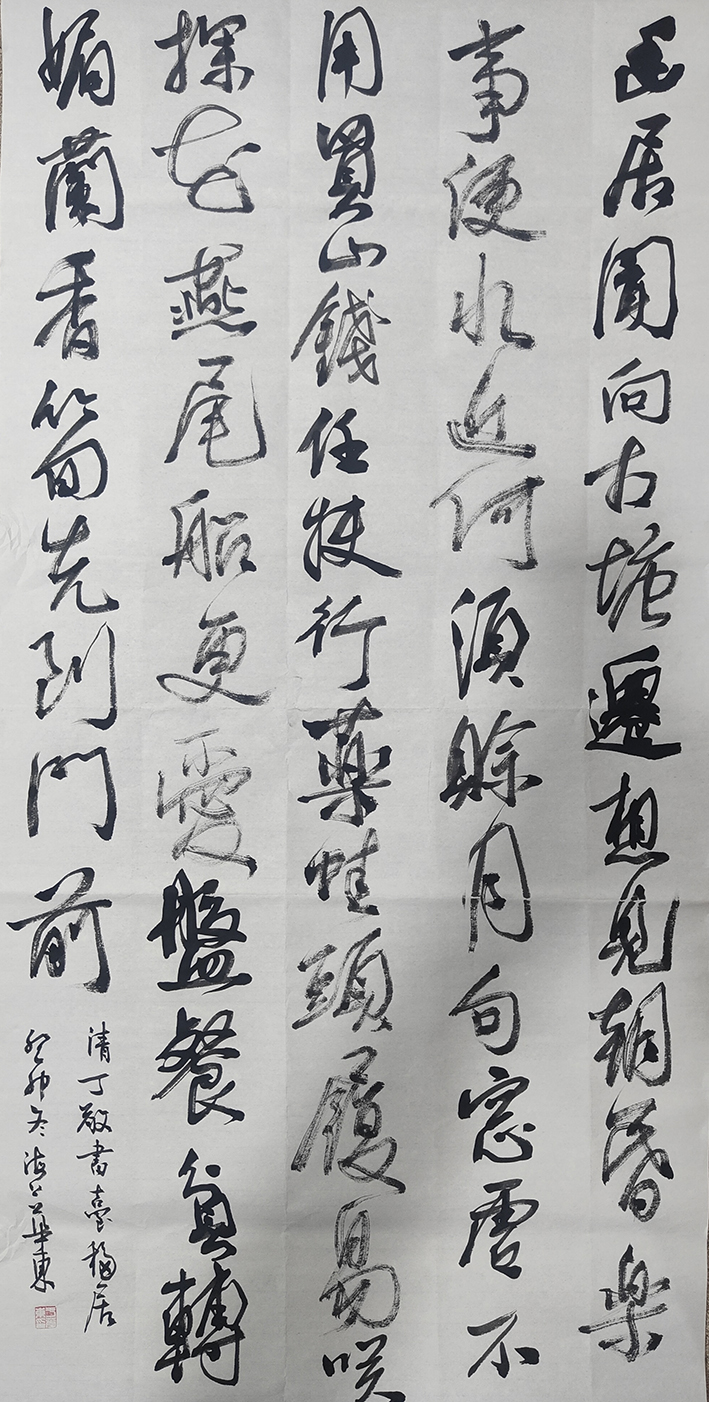 幽居聞向古塘遷想見朝昏樂
事便水近何須賒月句窓虛不
用買山錢任扶行藥蛙頭履易喚
探花燕尾船更愛盤餐貧轉
媚蘭香筍先到門前
清丁敬書臺移居
癸卯冬海上華東